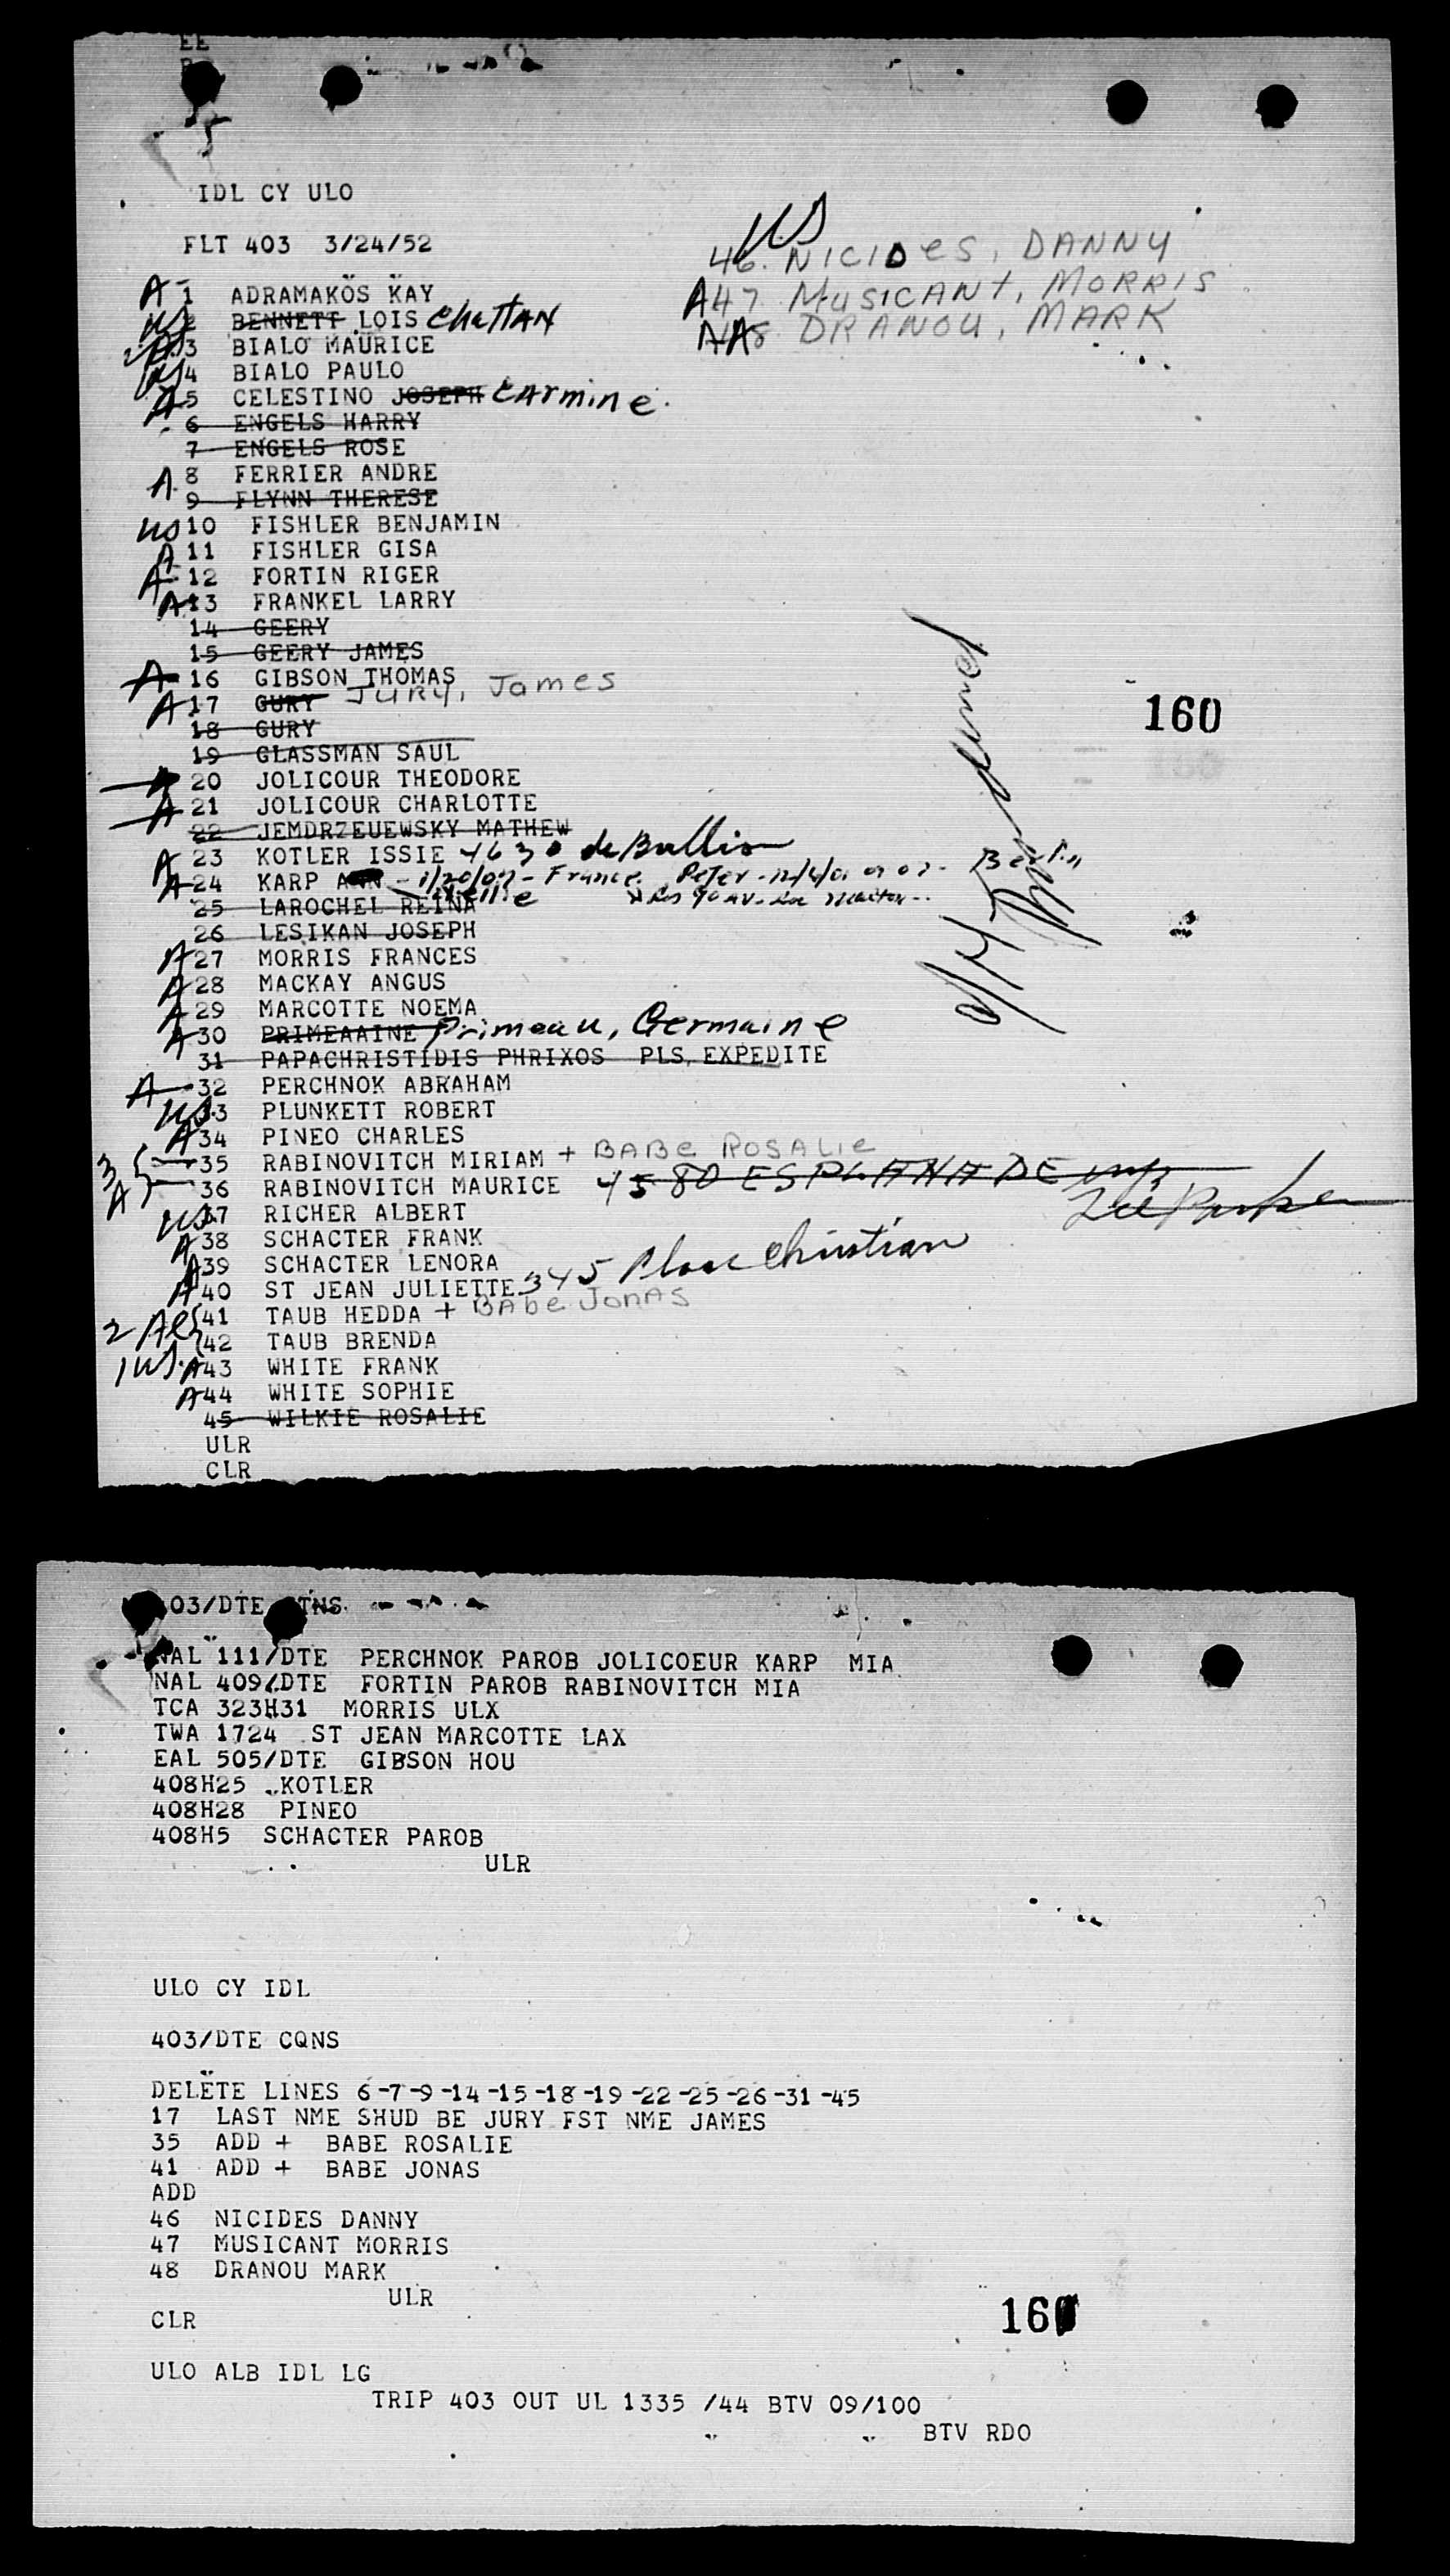 EE
IDL CY ULO
FLT 403 3/24/52
US
46. NICIDES, DANNY
A47 MUSICANT, MORRIS
AA8 DRANOU, MARK
A 1 ADRAMAKOS KAY
US 2 BENNETT LOIS Chattan
A 3 BIALO MAURICE
US 4 BIALO PAULO
A 5 CELESTINO JOSEPH CArmine.
6 ENGELS HARRY
7 ENGELS ROSE
A 8 FERRIER ANDRE
9 FLYNN THERESE
US 10 FISHLER BENJAMIN
A 11 FISHLER GISA
A 12 FORTIN RIGER
A 13 FRANKEL LARRY
14 GEERY
15 GEERY JAMES
A 16 GIBSON THOMAS
A 17 GURY JURY, James
18 GURY
19 GLASSMAN SAUL
160
A 20 JOLICOUR THEODORE
A 21 JOLICOUR CHARLOTTE
22 JEMDRZEUEWSKY MATHEW
A 23 KOTLER ISSIE 4630 de Bullion
A 24 KARP ANN - 1/20/07 - France. Peter - Berlin
25 LAROCHEL REINA
26 LESIKAN JOSEPH
A 27 MORRIS FRANCES
A 28 MACKAY ANGUS
A 29 MARCOTTE NOEMA
A 30 PRIMEAAINE Primeau, Germaine
31 PAPACHRISTIDIS PHRIXOS PLS EXPEDITE
A 32 PERCHNOK ABRAHAM
US 33 PLUNKETT ROBERT
A 34 PINEO CHARLES
3 35 RABINOVITCH MIRIAM + BABE ROSALIE
A 36 RABINOVITCH MAURICE 4580 ESPLANADE
US 37 RICHER ALBERT
A 38 SCHACTER FRANK
A 39 SCHACTER LENORA
A 40 ST JEAN JULIETTE 345 Place Christian
2 Al 41 TAUB HEDDA + BAbe JONAS
42 TAUB BRENDA
1 US A 43 WHITE FRANK
A 44 WHITE SOPHIE
45 WILKIE ROSALIE
ULR
CLR
03/DTE
NAL 111/DTE PERCHNOK PAROB JOLICOEUR KARP MIA
NAL 409/DTE FORTIN PAROB RABINOVITCH MIA
TCA 323H31 MORRIS ULX
TWA 1724 ST JEAN MARCOTTE LAX
EAL 505/DTE GIBSON HOU
408H25 KOTLER
408H28 PINEO
408H5 SCHACTER PAROB
ULR
ULO CY IDL
403/DTE CQNS
DELETE LINES 6-7-9-14-15-18-19-22-25-26-31-45
17 LAST NME SHUD BE JURY FST NME JAMES
35 ADD + BABE ROSALIE
41 ADD + BABE JONAS
ADD
46 NICIDES DANNY
47 MUSICANT MORRIS
48 DRANOU MARK
ULR
CLR
ULO ALB IDL LG
TRIP 403 OUT UL 1335 /44 BTV 09/100
BTV RDO